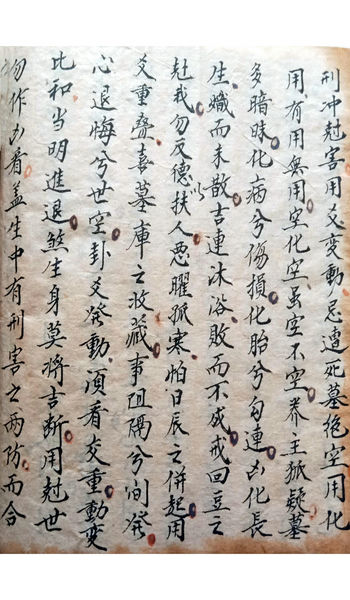 刑冲尅害用爻变動忌遭死墓絶空用化
用有用無用空化空虽空不空养主狐疑墓
多暗昧化病兮傷損化胎兮勾連凶化長
生熾而未散吉連沐浴敗而不成戒回豆之
尅我勿反德以扶人恶曜孤寒怕日辰之併起用
爻重叠喜墓庫之收藏事阻隔兮间發
心退悔兮世空卦爻發動須看交重動变
比和当明進退煞生身莫將吉断用尅世
勿作凶看盖生中有刑害之两防而合